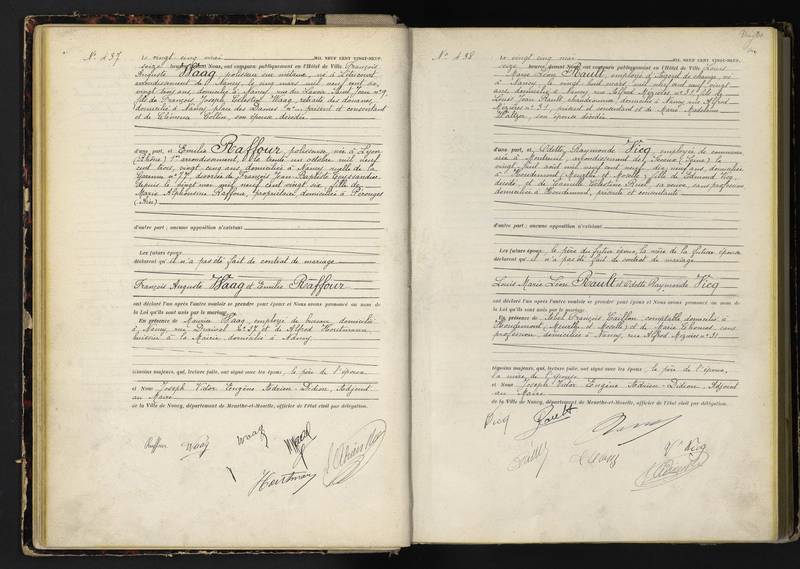 N° 437
Le vingt cinq mai MIL NEUF CENT VINGT-NEUF,
seize heures devant Nous, ont comparu publiquement en l'Hôtel de Ville François
Auguste Waag, polisseur sur métaux, né à
à Nancy, le cinq mars mil neuf cent six,
vingt trois ans, domicilié à Nancy, rue du Saint Jean n° 9,
fils de François Joseph Célestin Waag, retraité des douanes,
domicilié à Nancy, place des Dames n° présent et consentant
et de son épouse décédée
d'une part, et Emilie Raffour, polisseuse, née à Lyon
(Rhône) 1er arrondissement, le trente un octobre mil neuf
cent trois, vingt cinq ans, domiciliée à Nancy ruelle de la
Garenne n° 77, divorcée de François Jean Baptiste
depuis le vingt mai mil neuf cent vingt six, fille de
Marie Alphonsine Raffour, propriétaire, domiciliée à Pérouges
(Ain)
d'autre part ; aucune opposition n'existant
Les futurs époux
déclarent qu'il n'a pas été fait de contrat de mariage
François Auguste Waag et Emilie Raffour
ont déclaré l'un après l'autre vouloir se prendre pour époux et Nous avons prononcé au nom de
la Loi qu'ils sont unis par le mariage.
En présence de Maurice Waag, employé de bureau, domicilié
à Nancy, rue Durival n° 37, et de Alfred Houtmann,
huissier à la Mairie, domicilié à Nancy
témoins majeurs, qui, lecture faite, ont signé avec les époux, le père de l'époux,
et Nous Joseph Victor Eugène Adrien-Didion, Adjoint
au Maire
de la Ville de Nancy, département de Meurthe-et-Moselle, officier de l'état civil par délégation.
Raffour Waag Waag Waag
Houtmann
N° 438
Le vingt cinq mai MIL NEUF CENT VINGT-NEUF,
seize heures devant Nous, ont comparu publiquement en l'Hôtel de Ville Louis
Marie Léon Rault, employé d'agent de change, né
à Nancy, le vingt huit mars mil neuf cent neuf, vingt
ans, domicilié à Nancy, rue Alfred Mézières n° 31, fils de
Louis Jean Rault, domicilié à Nancy rue Alfred
Mézières n° 31, présent et consentant et de Marie Madeleine
son épouse décédée
d'une part, et Odette Raymonde Vicq, employée de commerce
née à Montreuil, arrondissement des (Eure) le
vingt huit août mil neuf cent neuf, dix neuf ans, domiciliée
à Houdemont (Meurthe et Moselle), fille de Edmond Vicq,
décédé, et de Camille Célestine sa veuve, sans profession,
domiciliée à Houdemont, présente et consentante
d'autre part ; aucune opposition n'existant
Les futurs époux, le père du futur époux, la mère de la future épouse
déclarent qu'il n'a pas été fait de contrat de mariage
Louis Marie Léon Rault et Odette Raymonde Vicq
ont déclaré l'un après l'autre vouloir se prendre pour époux et Nous avons prononcé au nom de
la Loi qu'ils sont unis par le mariage.
En présence de François comptable, domicilié à
Houdemont (Meurthe et Moselle) et de Marie sans
profession, domiciliée à Nancy, rue Alfred Mézières n° 31
témoins majeurs, qui, lecture faite, ont signé avec les époux, le père de l'époux,
la mère de l'épouse
et Nous Joseph Victor Eugène Adrien-Didion, Adjoint
au Maire
de la Ville de Nancy, département de Meurthe-et-Moselle, officier de l'état civil par délégation.
Vicq Rault
Vve Vicq